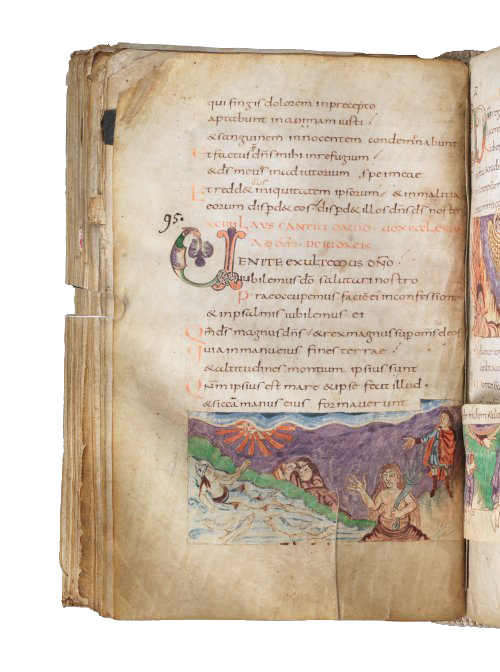 qui fingis dolorem inprecepto
aptabunt inanimam iusti
& sanguinem innocentem condemnabunt
Et factus ē dn̄s mihi inrefugium
& dс̄ meus inadiutorium spei meae
Et redd& iniquitatem ipsorum & inmalitia
eorum disp̄d& eos disp̄d& illos dn̄s ds̄ noster
LAUS CANTICI DAVID
95.
VENITE EXULTEMUS DN̄O
iubilemus dō salutari nostro
Praeoccupemus faciē ei inconfessione
& inpsalmis iubilemus ei
Qm̄ ds̄ magnus dn̄s & rex magnus sup om̄s deos
Quia inmanu eius fines terrae
& altitudines montium ipsius sunt
Qm̄ ipsius est mare & ipse fecit illud
& siccā manus eius formaverunt